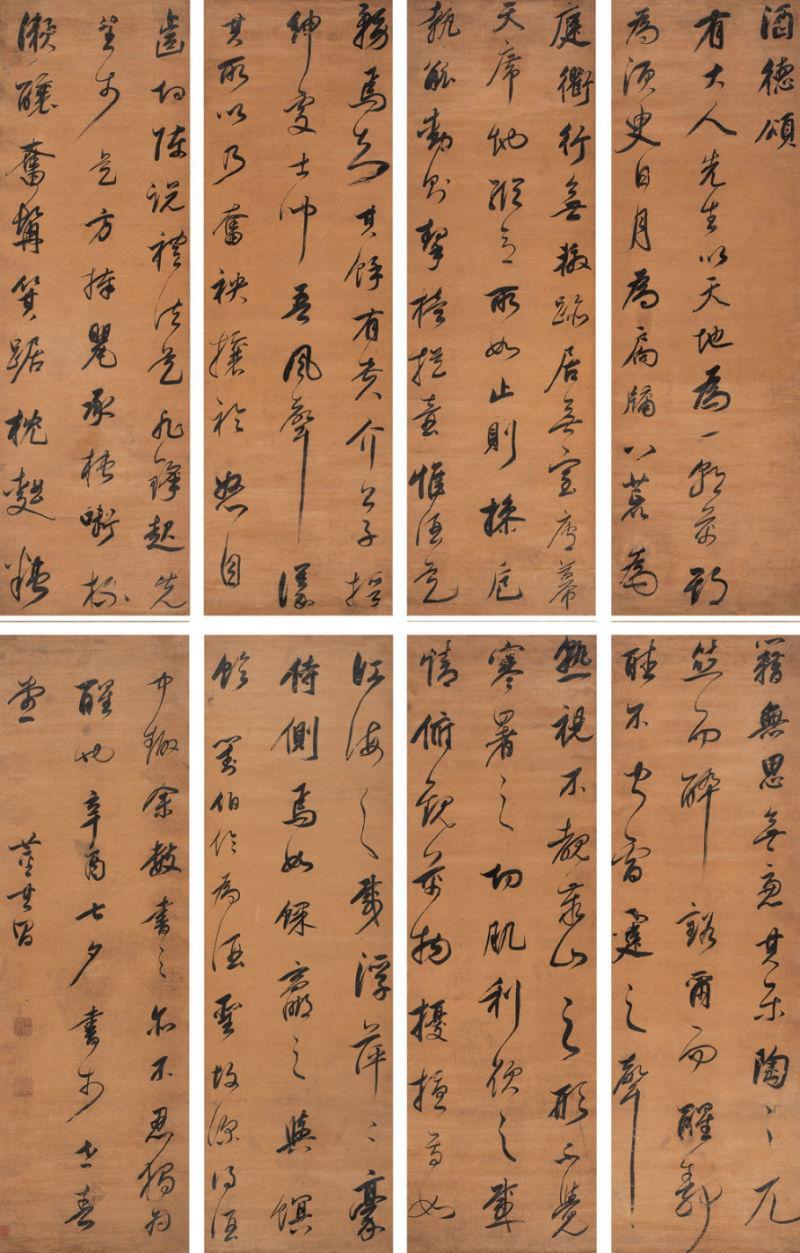 酒德頌
有大人先生以天地為一朝萬期
為須臾日月為扃牖八荒為
庭衢行無轍跡居無室廬幕
天席地縱意所如止則操卮
執觚動則挈榼提壺惟酒是
務焉知其餘有貴介公子搢
紳處士聞吾風聲議
其所以乃奮袂攘衿怒目
齒切陳說禮法是非鋒起先
生於是方捧罌承槽銜杯
漱醪奮髯箕踞枕麴糟
籍無思無慮其樂陶々兀
然而醉豁爾而醒靜
聽不聞雷霆之聲
熟視不覩泰山之形不覺
寒暑之切肌利欲之感
情俯觀萬物擾擾焉如
江海之載浮萍二豪
侍側焉如蜾蠃之與螟
蛉 劉伯伶為酒聖故深得酒
中趣余數書之亦不忍獨為
醒也辛酉七夕書於世春
堂 董其昌